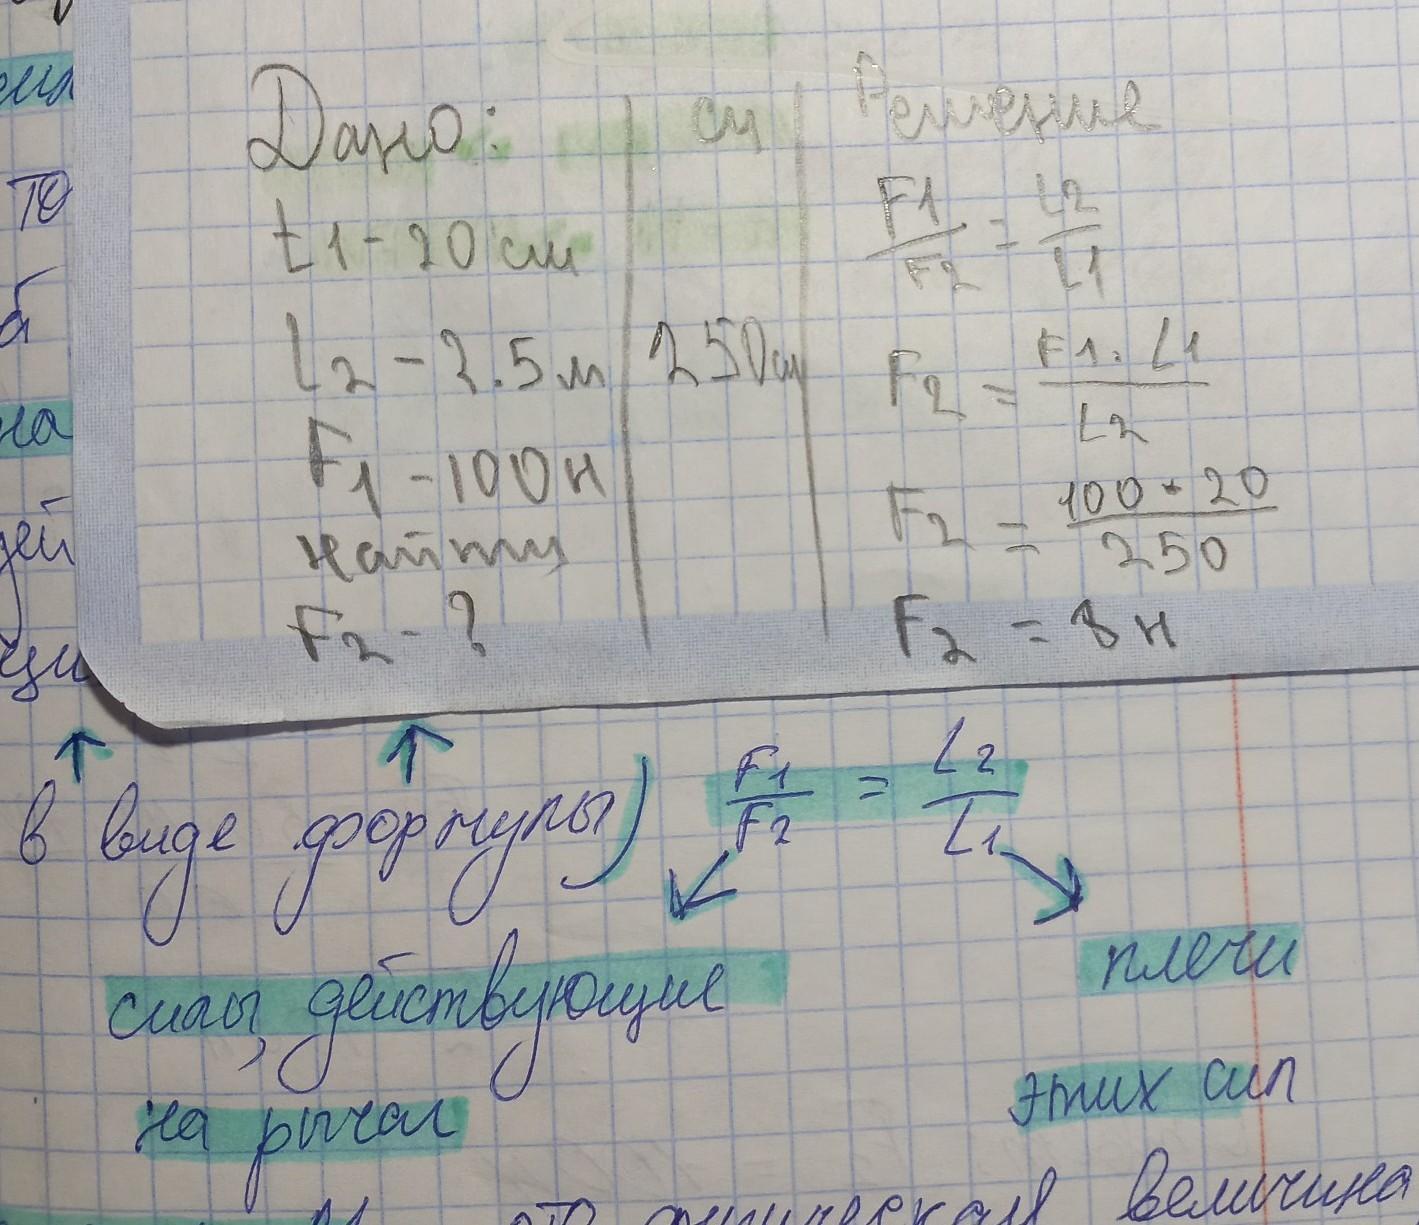 Дано:
L1 - 20 см
L2 - 2.5 м
F1 - 100 н
найти
F2 - ?
см
250 см
Решение
F1/F2 = L2/L1
F2 = F1 · L1 / L2
F2 = 100 · 20 / 250
F2 = 8 н
то
б
на
дей
щи
в виде формулы) F1/F2 = L2/L1
силы, действующие
на рычаг
плечи
этих сил
это физическая величина